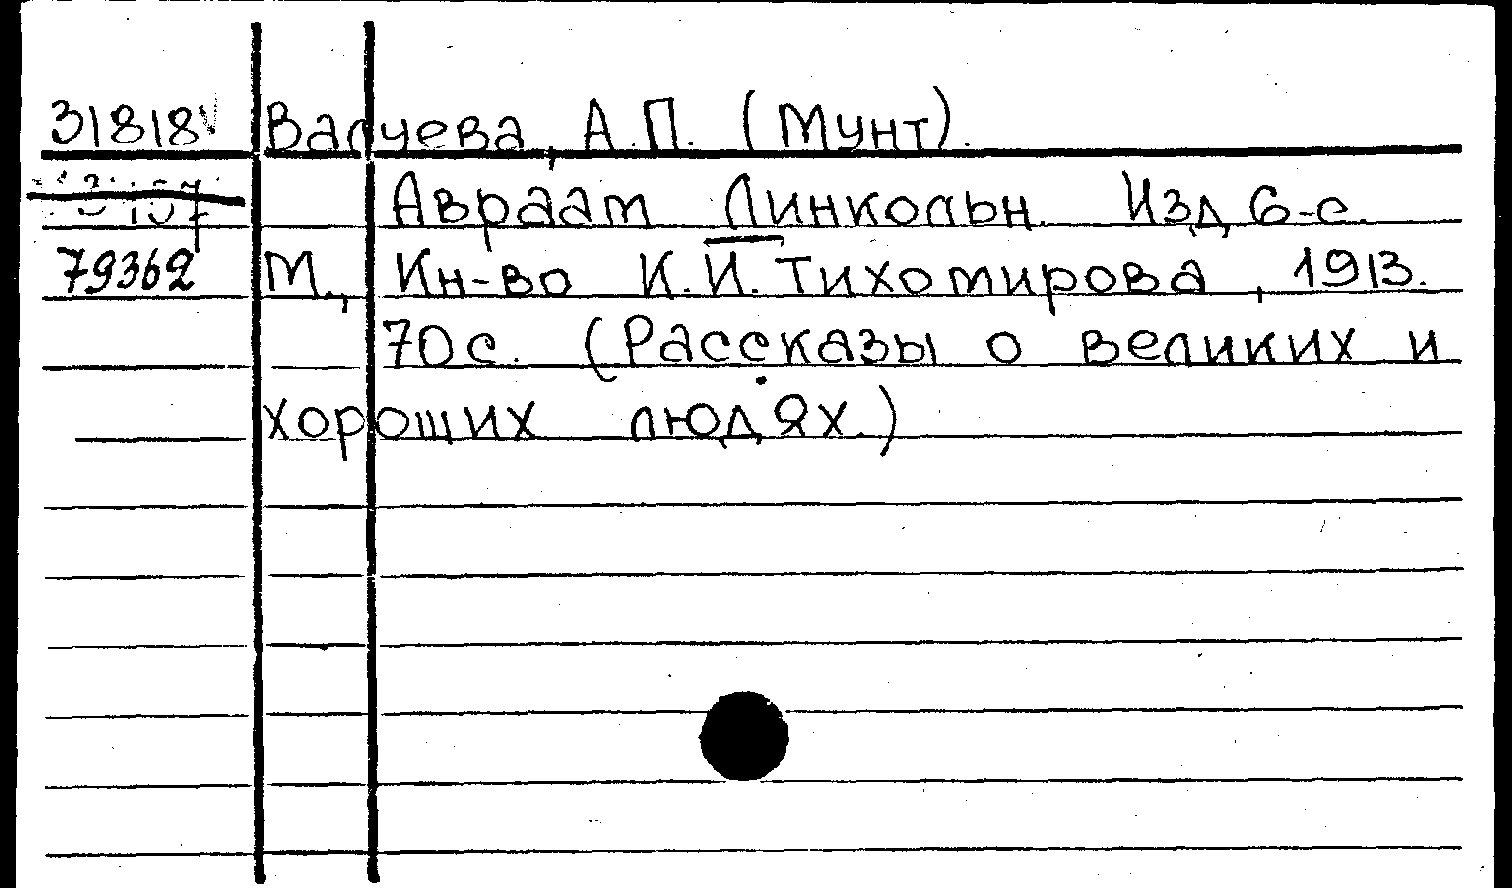 31818 Валуева, А.П. (Мунт).
Авраам Линкольн. Изд 6-е.
79362 М., Кн-во К.И.Тихомирова, 1913.
70с. (Рассказы о великих и
хороших людях.)